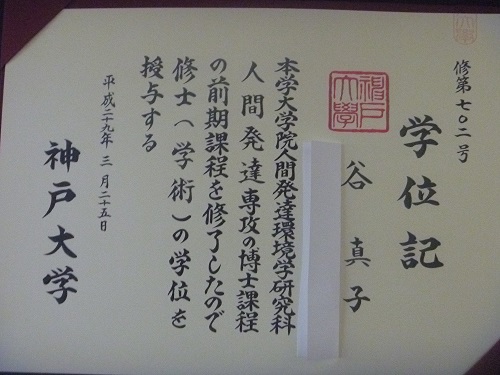 修第七〇二号
学位記
谷真子
神戸大学
本学大学院人間発達環境学研究科
人間発達専攻の博士課程
の前期課程を修了したので
修士(学術)の学位を
授与する
平成二十九年三月二十五日
神戸大学